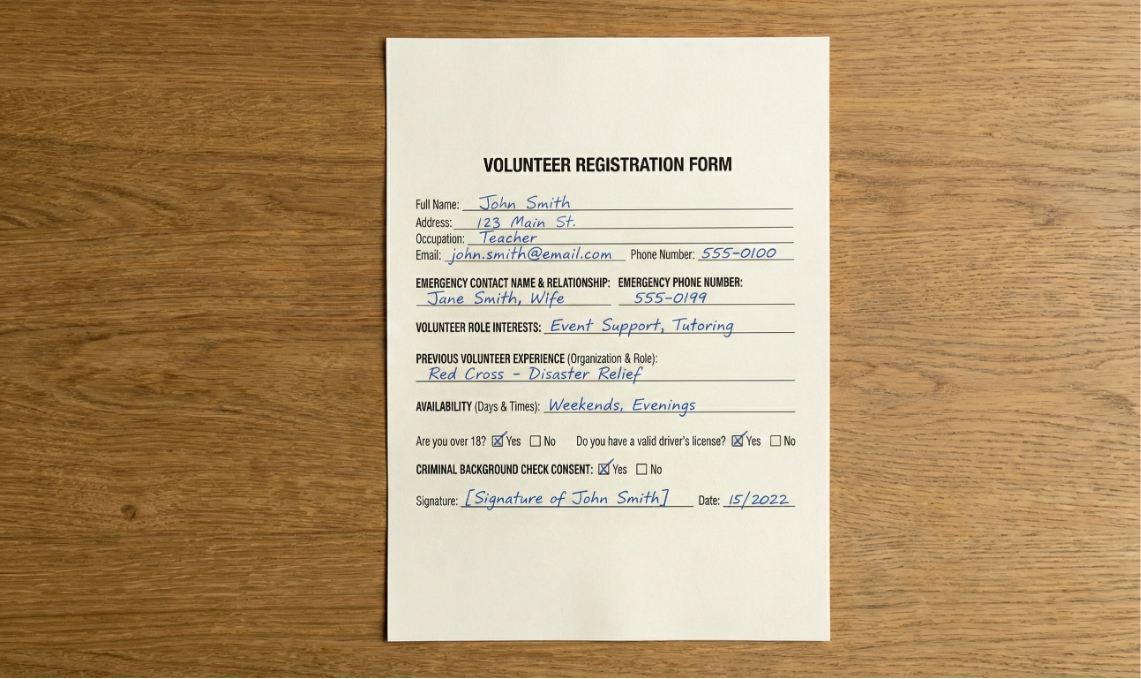 VOLUNTEER REGISTRATION FORM
Full Name: John Smith
Address: 123 Main St.
Occupation: Teacher
Email: john.smith@email.com Phone Number: 555-0100
EMERGENCY CONTACT NAME & RELATIONSHIP: EMERGENCY PHONE NUMBER:
Jane Smith, Wife 555-0199
VOLUNTEER ROLE INTERESTS: Event Support, Tutoring
PREVIOUS VOLUNTEER EXPERIENCE (Organization & Role):
Red Cross - Disaster Relief
AVAILABILITY (Days & Times): Weekends, Evenings
Are you over 18? ☒ Yes ☐ No Do you have a valid driver's license? ☒ Yes ☐ No
CRIMINAL BACKGROUND CHECK CONSENT: ☒ Yes ☐ No
Signature: [Signature of John Smith] Date: 15/2022